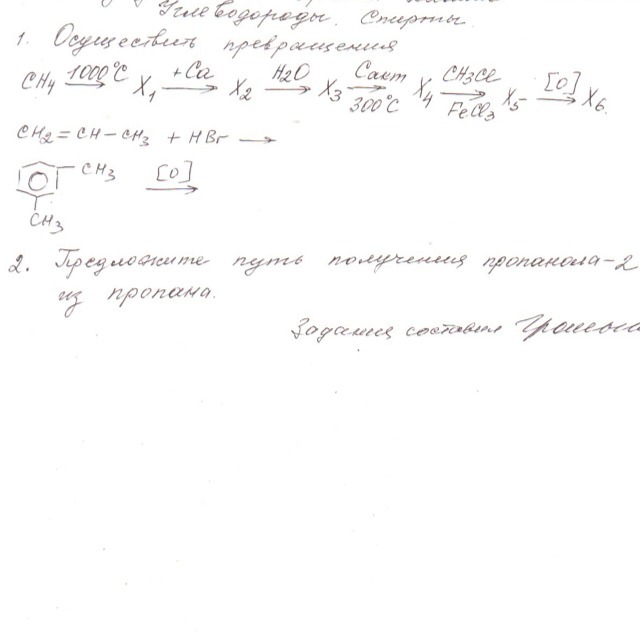 Углеводороды. Спирты.
1. Осуществить превращения
CH4 1000°C → X1 +Ca → X2 H2O → X3 Cакт 300°C → X4 CH3Cl FeCl3 → X5 [O] → X6.
CH2=CH-CH3 + HBr →
CH3 [O] →
CH3
2. Предложите путь получения пропанола-2
из пропана.
Задания составил